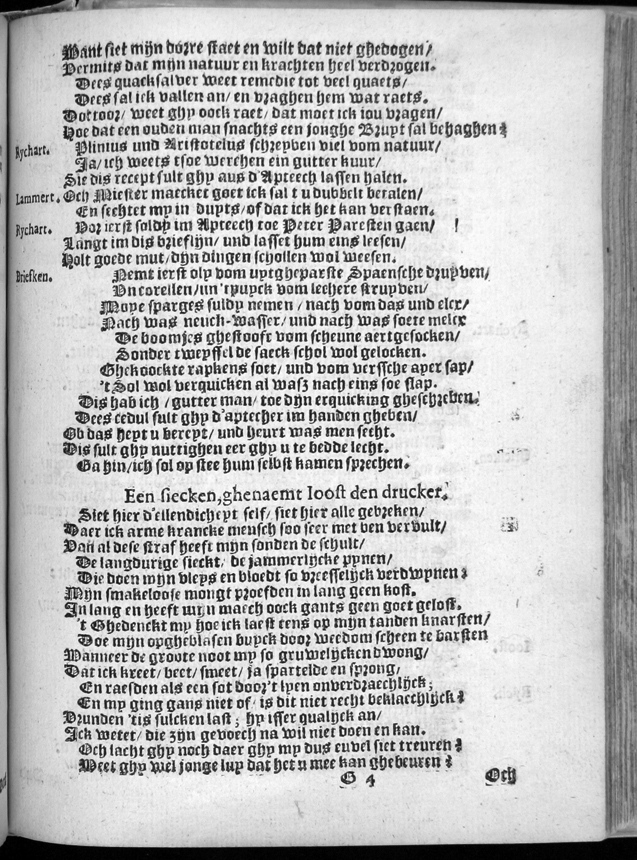 Want siet mijn dorre staet en wilt dat niet ghedogen/
Vermits dat mijn natuur en krachten heel verdrogen.
Dees quacksalver weet remedie tot veel quaets/
Dees sal ick vallen an/ en vraghen hem wat raets.
Dottoor/ weet ghy oock raet/ dat moet ick iou vragen/
Hoe dat een ouden man snachts een jonghe Bruyt sal behaghen?
Rychart. Plinius und Aristotelus schreyben viel vom natuur/
Ja/ ich weets tsoe werchen ein gutter kuur/
Sie dis recept sult ghy aus d'Apteech lassen halen.
Lammert. Och Miester maecket goet ick sal t u dubbelt betalen/
En sechtet my in Duyts/ of dat ick het kan verstaen.
Rychart. Vor ierst soldy im Apteech toe Peter Paresten gaen/
Langt im dis brieflijn/ und lasset hum eins leesen/
Holt goede mut/ dijn dingen schollen wol weesen.
Briefken. Nemt ierst oly vom uytgheparste Spaensche druyven/
Un coreilen/ un 'tpuyck vom lechere struyven/
Moye sparges suldy nemen/ nach vom das und elcx/
Nach was neuch-wasser/ und nach was soete melcx
De boomjes ghestooft vom scheune aertgesocken/
Sonder tweyffel de saeck schol wol gelocken.
Ghekoockte rapkens soet/ und vom verssche aper sap/
't Sol wol verquicken al wasz nach eins soe slap.
Dis hab ich/ gutter man/ toe dijn erquicking gheschreben.
Dees cedul sult ghy d'aptecher im handen gheben/
Ob das heyt u bereyt/ und heurt was men secht.
Dis sult ghy nuttighen eer ghy u te bedde lecht.
Ga hin/ ich sol op stee hum selbst kamen sprechen.
Een siecken, ghenaemt Ioost den drucker.
Siet hier d'eilendicheyt self/ siet hier alle gebreken/
Daer ick arme krancke mensch soo seer met ben vervult/
Van al dese straf heeft mijn sonden de schult/
De langdurige sieckt/ de jammerlijcke pynen/
Die doen mijn vleys en bloedt so vreesselijck verdwynen?
Mijn smakeloose mongt proefden in lang geen kost.
In lang en heeft mijn maech oock gants geen goet gelost.
't Ghedenckt my hoe ick laest eens op mijn tanden knarsten/
Doe mijn opgheblasen buyck door weedom scheen te barsten
Wanneer de groote noot my so gruwelijcken dwong/
Dat ick kreet/ beet/ smeet/ ja spartelde en sprong,
En raesden als een sot door't lyen onverdraechlijck;
En my ging gans niet of/ is dit niet recht beklaechlijck?
Vrunden 'tis sulcken last; hy isser qualijck an/
Ick wetet/ die zijn gevoech na wil niet doen en kan.
Och lacht ghy noch daer ghy my dus euvel siet treuren?
Weet ghy wel jonge luy dat het u mee kan ghebeuren?
G 4 Och